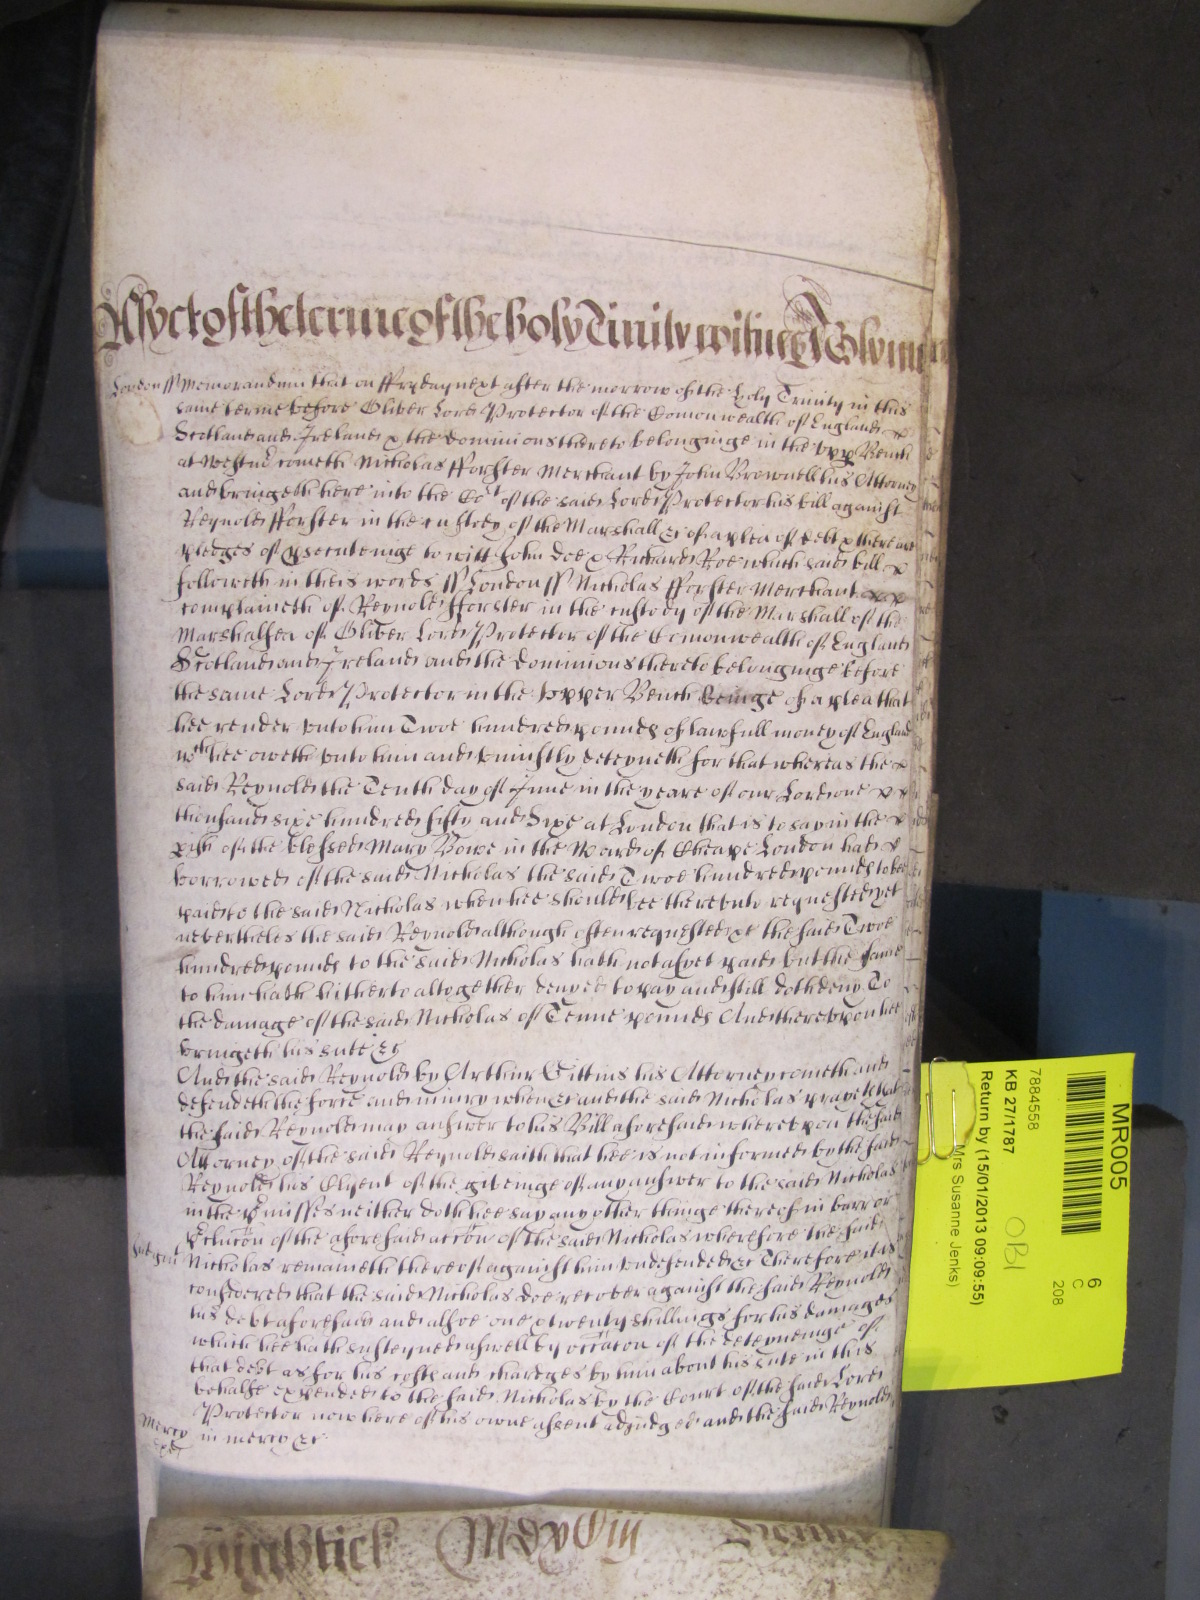 As yet of the terme of the holy Trinity witnes J Glynn
London ss Memorandum that on ffryday next after the morrow of the Holy Trinity in this
same terme before Oliver Lord Protector of the Comonwealth of England
Scotland and Ireland & the dominions thereto belonginge in the vpp Bench
at Westmr cometh Nicholas fforster Merchant by John Brownell his Attorney
and bringeth here into the Cot of the said Lord Protector his bill against
Reynold fforster in the custody of the Marshall &c of a plea of debt & there are
pledges of psecuteinge to witt John Doe & Richard Roe which said bill
followeth in theis words ss London ss Nicholas fforster Merchant
complaineth of Reynold fforster in the custody of the Marshall of the
Marshalsea of Oliver Lord Protector of the Comonwealth of England
Scotland and Ireland and the dominions thereto belonginge before
the same Lord Protector in the vpper Bench beinge of a plea that
hee render vnto him Twoe hundred pounds of lawfull money of England
wch hee oweth vnto him and vniustly deteyneth for that whereas the
said Reynold the Tenth day of June in the yeare of our Lord one
thousand sixe hundred fifty and Sixe at London that is to say in the
pish of the blessed Mary Bowe in the Ward of Cheape London had
borrowed of the said Nicholas the said Twoe hundred pounds to bee
paid to the said Nicholas when hee should bee therevnto requested yet
nevertheles the said Reynold although often requested &c the said Twoe
hundred pounds to the said Nicholas hath not as yet paid but the same
to him hath hitherto altogether denyed to pay and still doth deny To
the damage of the said Nicholas of Tenne pounds And therevpon hee
bringeth his sute &c
And the said Reynold by Arthur Gittins his Attorney cometh and
defendeth the force and iniury when &c and the said Nicholas prayeth that
the said Reynold may answer to his Bill aforesaid wherevpon the said
Attorney of the said Reynold saith that hee is not informed by the said
Reynold his Clyent of the giveinge of any answer to the said Nicholas
in the pmisses neither doth hee say any other thinge thereof in barr or
pclucon of the aforesaid accon of the said Nicholas wherefore the said
Nicholas remaineth thereof against him vndefended &c Therefore it is
considered that the said Nicholas doe recover against the said Reynold
his debt aforesaid and alsoe one & twenty shillings for his damages
which hee hath susteyned aswell by occacon of the deteyneinge of
that debt as for his costs and chardges by him about his sute in this
behalfe expended to the said Nicholas by the Court of the said Lord
Protector now here of his owne assent adjudged and the said Reynold
Mercy
in mercy &c
MR005
6
C
208
7884558
KB 27/1787
OBI
Return by (15/01/2013 09:09:55)
Mrs Susanne Jenks)